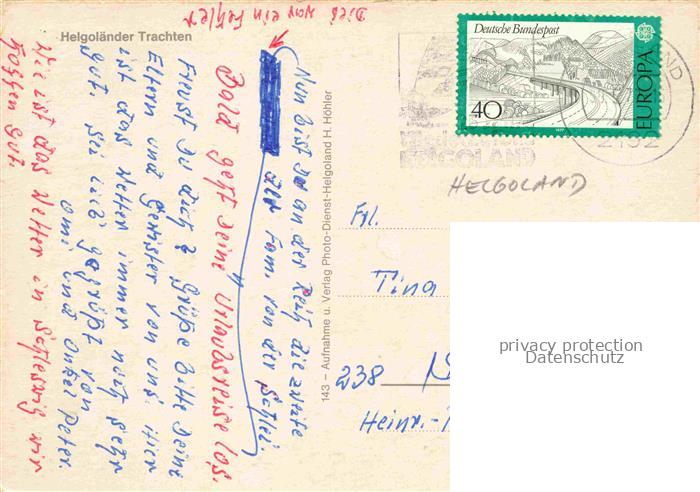 Helgoländer Trachten
Dies war ein Fehler
Nun bist du an der Reih die zweite
der Fam. von der Schlei.
Bald geht deine Urlaubsreise los.
Freust du dich? Grüße bitte deine
Eltern und Gewister von uns. Hier
ist das Wetter immer noch sehr
gut. Sei lieb gegrüßt von
Omi und Onkel Peter.
Wie ist das Wetter in Schleswig wir
hoffen gut.
143 – Aufnahme u. Verlag Photo-Dienst-Helgoland H. Höhler
Deutsche Bundespost
40
EUROPA
HELGOLAND
2192
HELGOLAND
Frl.
Tina
238
Heinr.-
privacy protection
Datenschutz